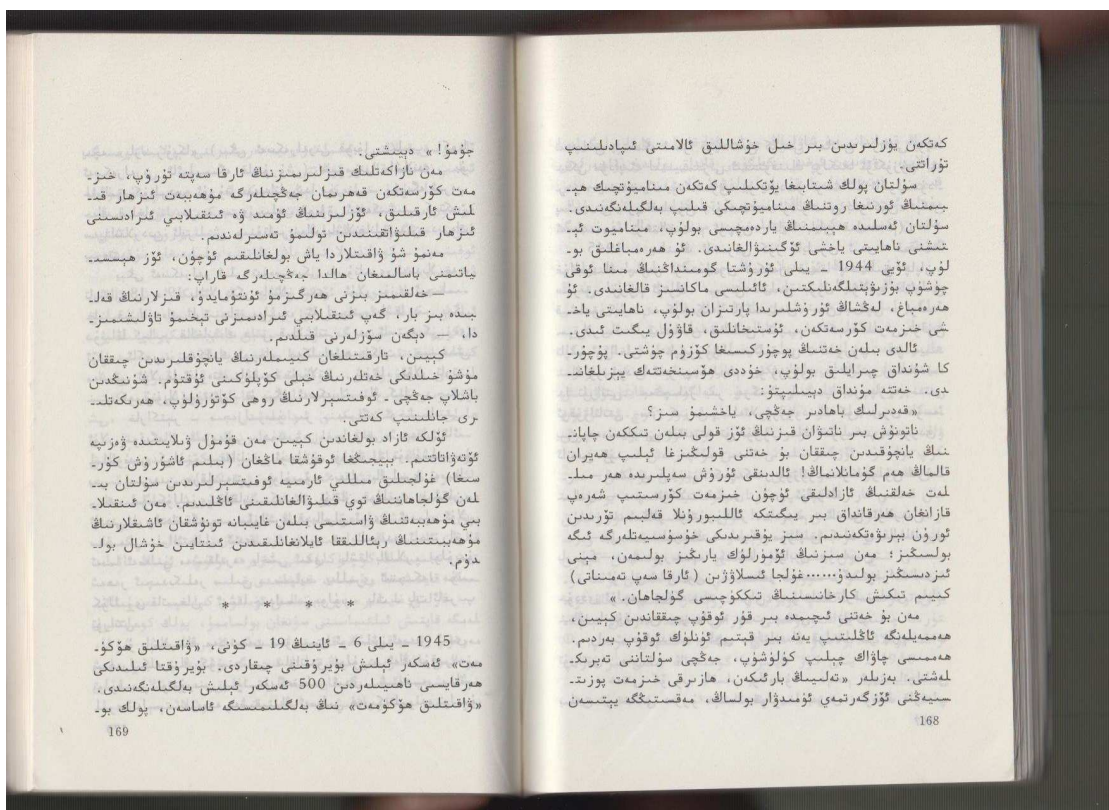 كەتكەن يۈزلىرىدىن بىر خىل خۇشاللىق ئالامىتى ئىپادىلىنىپ
تۇراتتى.
سۇلتان پولك شىتابىغا يۆتكىلىپ كەتكەن مىناميوتچىك ھې‍ـ
بىمنىڭ ئورنىغا روتنىڭ مىناميوتچىكى قىلىپ بەلگىلەنگەندى.
سۇلتان ئەسلىدە ھېبىمنىڭ ياردەمچىسى بولۇپ، مىناميوت ئې‍ـ
تىشنى ناھايىتى ياخشى ئۆگىنىۋالغانىدى. ئۇ ھەرەمباغلىق بو‍ـ
لۇپ، ئۆيى 1944 ـ يىلى ئۇرۇشتا گومىنداڭنىڭ مىنا ئوقى
چۈشۈپ بۇزۇۋېتىلگەنلىكتىن، ئائىلىسى ماكانسىز قالغانىدى. ئۇ
ھەرەمباغ، لەڭشاڭ ئۇرۇشلىرىدا پارتىزان بولۇپ، ناھايىتى ياخ‍ـ
شى خىزمەت كۆرسەتكەن، ئۇستىخانلىق، قاۋۇل يىگىت ئىدى.
ئالدى بىلەن خەتنىڭ پوچۇركىسىغا كۆزۈم چۈشتى. پوچۇر‍ـ
كا شۇنداق چىرايلىق بولۇپ، خۇددى ھۆسىنخەتتەك يېزىلغانى‍ـ
دى. خەتتە مۇنداق دېيىلىپتۇ:
«قەدىرلىك باھادىر جەڭچى، ياخشىمۇ سىز؟
ناتونۇش بىر ناتىۋان قىزنىڭ ئۆز قولى بىلەن تىككەن چاپان‍ـ
نىڭ يانچۇقىدىن چىققان بۇ خەتنى قولىڭىزغا ئېلىپ ھەيران
قالماڭ ھەم گۇمانلانماڭ! ئالدىنقى ئۇرۇش سەپلىرىدە ھەر مىل‍ـ
لەت خەلقىنىڭ ئازادلىقى ئۈچۈن خىزمەت كۆرسىتىپ شەرەپ
قازانغان ھەرقانداق بىر يىگىتكە ئاللىبۇرۇنلا قەلبىم تۆرىدىن
ئورۇن بېرىۋەتكەنىدىم. سىز يۇقىرىدىكى خۇسۇسىيەتلەرگە ئىگە
بولسىڭىز؛ مەن سىزنىڭ ئۆمۈرلۈك يارىڭىز بولىمەن، مېنى
ئىزدىسىڭىز بولىدۇ……غۇلجا ئىسلاۋۇزىن (ئارقا سەپ تەمىناتى)
كىيىم تىكىش كارخانىسىنىڭ تىككۈچىسى گۈلجاھان.»
مەن بۇ خەتنى ئىچىمدە بىر قۇر ئوقۇپ چىققاندىن كېيىن،
ھەممەيلەنگە ئاڭلىتىپ يەنە بىر قېتىم ئۈنلۈك ئوقۇپ بەردىم.
ھەممىسى چاۋاك چېلىپ كۈلۈشۈپ، جەڭچى سۇلتاننى تەبرىك‍ـ
لەشتى. بەزىلەر «تەلىيىڭ بارئىكەن، ھازىرقى خىزمەت پوزىت‍ـ
سىيەڭنى ئۆزگەرتمەي ئۈمىدۋار بولساڭ، مەقسىتىڭگە يېتىسەن
168
جۇمۇ!» دېيىشتى.
مەن نازاكەتلىك قىزلىرىمىزنىڭ ئارقا سەپتە تۇرۇپ، خىز‍ـ
مەت كۆرسەتكەن قەھرىمان جەڭچىلەرگە مۇھەببەت ئىزھار قى‍ـ
لىش ئارقىلىق، ئۆزلىرىنىڭ ئۈمىد ۋە ئىنقىلابىي ئىرادىسىنى
ئىزھار قىلىۋاتقىنىدىن تولىمۇ تەسىرلەندىم.
مەنمۇ شۇ ۋاقىتلاردا ياش بولغانلىقىم ئۈچۈن، ئۆز ھېسسى‍ـ
ياتىمنى باسالمىغان ھالدا جەڭچىلەرگە قاراپ:
— خەلقىمىز بىزنى ھەرگىزمۇ ئۇنتۇمايدۇ، قىزلارنىڭ قەل‍ـ
بىدە بىز بار، گەپ ئىنقىلابىي ئىرادىمىزنى تېخىمۇ تاۋلىشىمىز‍ـ
دا، — دېگەن سۆزلەرنى قىلدىم.
كېيىن، تارقىتىلغان كىيىملەرنىڭ يانچۇقلىرىدىن چىققان
مۇشۇ خىلدىكى خەتلەرنىڭ خېلى كۆپلۈكىنى ئۇقتۇم. شۇنىڭدىن
باشلاپ جەڭچى ـ ئوفىتسېرلارنىڭ روھى كۆتۈرۈلۈپ، ھەرىكەتلى‍ـ
رى جانلىنىپ كەتتى.
ئۆلكە ئازاد بولغاندىن كېيىن مەن قۇمۇل ۋىلايىتىدە ۋەزىپە
ئۆتەۋاتاتتىم. بېيجىڭغا ئوقۇشقا ماڭغان (بىلىم ئاشۇرۇش كۇر‍ـ
سىغا) غۇلجىلىق مىللىي ئارمىيە ئوفىتسېرلىرىدىن سۇلتان بى‍ـ
لەن گۈلجاھاننىڭ توي قىلىۋالغانلىقىنى ئاڭلىدىم. مەن ئىنقىلا‍ـ
بىي مۇھەببەتنىڭ ۋاستىسى بىلەن غايىبانە تونۇشقان ئاشىقلارنىڭ
مۇھەببىتىنىڭ رېئاللىققا ئايلانغانلىقىدىن ئىنتايىن خۇشال بول‍ـ
دۇم.
* * * *
1945 ـ يىلى 6 ـ ئاينىڭ 19 ـ كۈنى، «ۋاقىتلىق ھۆكۈ‍ـ
مەت» ئەسكەر ئېلىش بۇيرۇقىنى چىقاردى. بۇيرۇقتا ئىلىدىكى
ھەرقايسى ناھىيىلەردىن 500 ئەسكەر ئېلىش بەلگىلەنگەنىدى.
«ۋاقىتلىق ھۆكۈمەت» نىڭ بەلگىلىمىسىگە ئاساسەن، پولك بو‍ـ
169